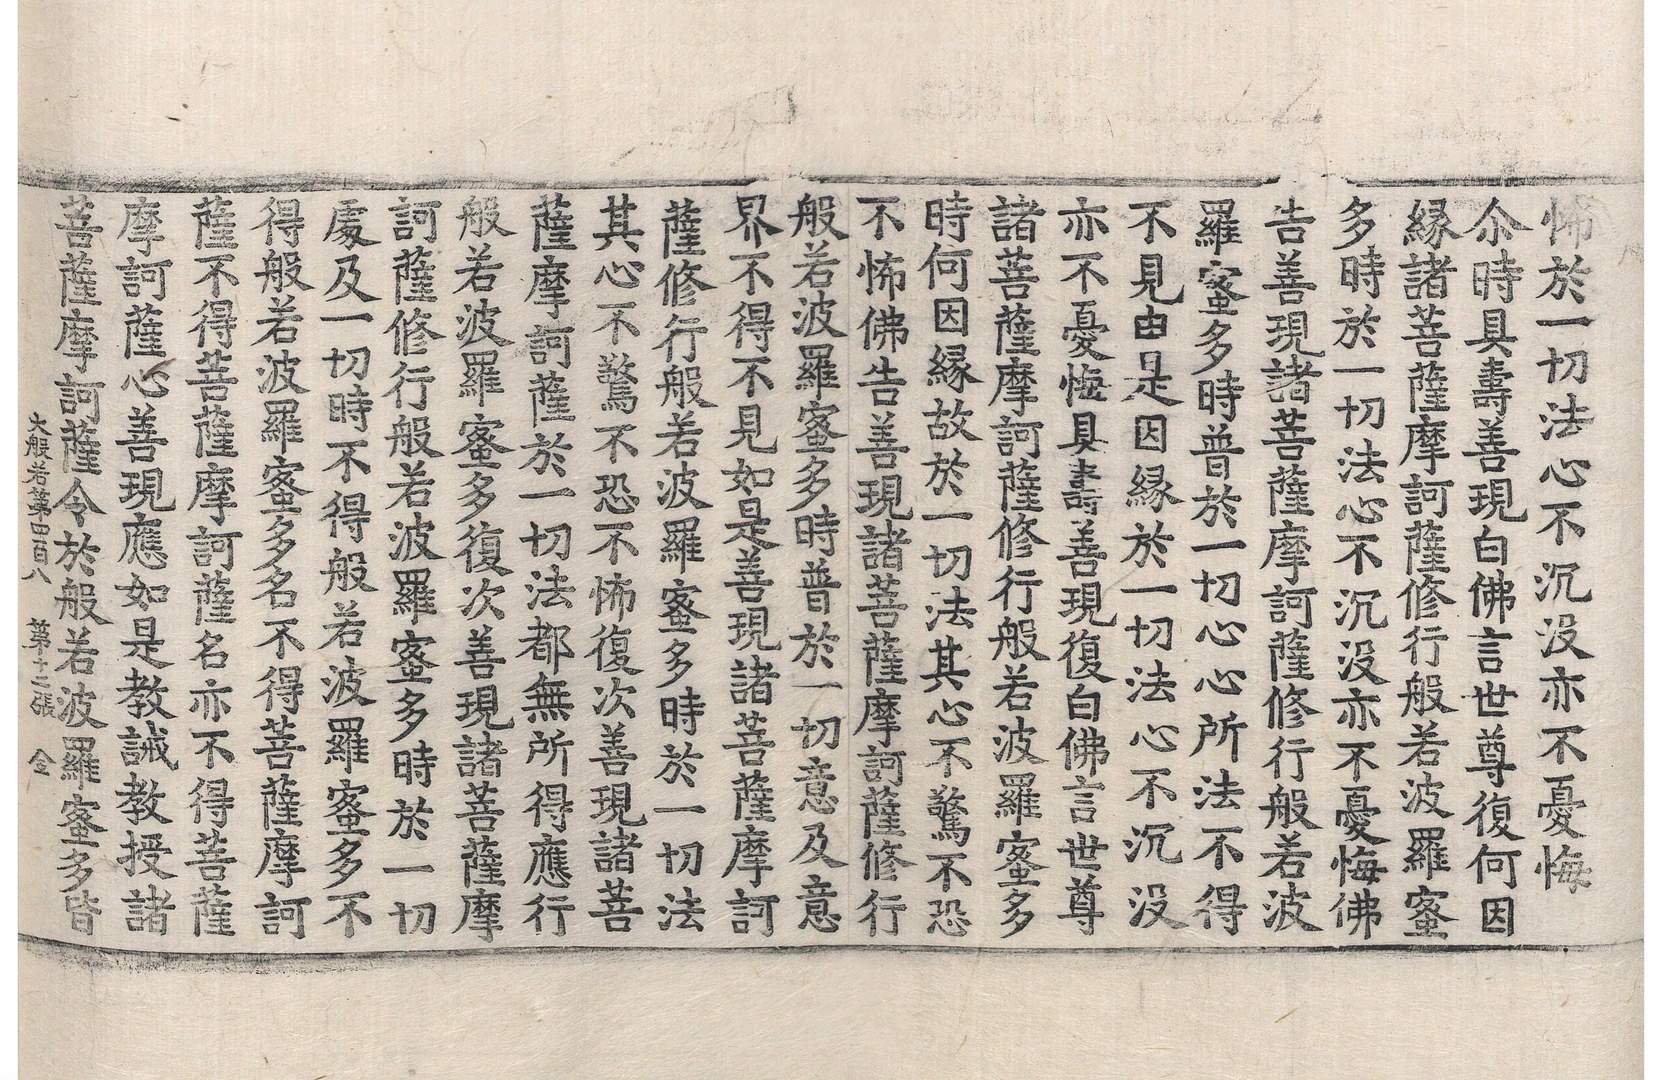 怖於一切法心不沉没亦不憂悔
尒時具壽善現白佛言世尊復何因
緣諸菩薩摩訶薩修行般若波羅蜜
多時於一切法心不沉没亦不憂悔佛
告善現諸菩薩摩訶薩修行般若波
羅蜜多時普於一切心心所法不得
不見由是因緣於一切法心不沉没
亦不憂悔具壽善現復白佛言世尊
諸菩薩摩訶薩修行般若波羅蜜多
時何因緣故於一切法其心不驚不恐
不怖佛告善現諸菩薩摩訶薩修行
般若波羅蜜多時普於一切意及意
界不得不見如是善現諸菩薩摩訶
薩修行般若波羅蜜多時於一切法
其心不驚不恐不怖復次善現諸菩
薩摩訶薩於一切法都無所得應行
般若波羅蜜多復次善現諸菩薩摩
訶薩修行般若波羅蜜多時於一切
處及一切時不得般若波羅蜜多不
得般若波羅蜜多名不得菩薩摩訶
薩不得菩薩摩訶薩名亦不得菩薩
摩訶薩心善現應如是教誡教授諸
菩薩摩訶薩令於般若波羅蜜多皆
大般若第四百八 第十二張 金